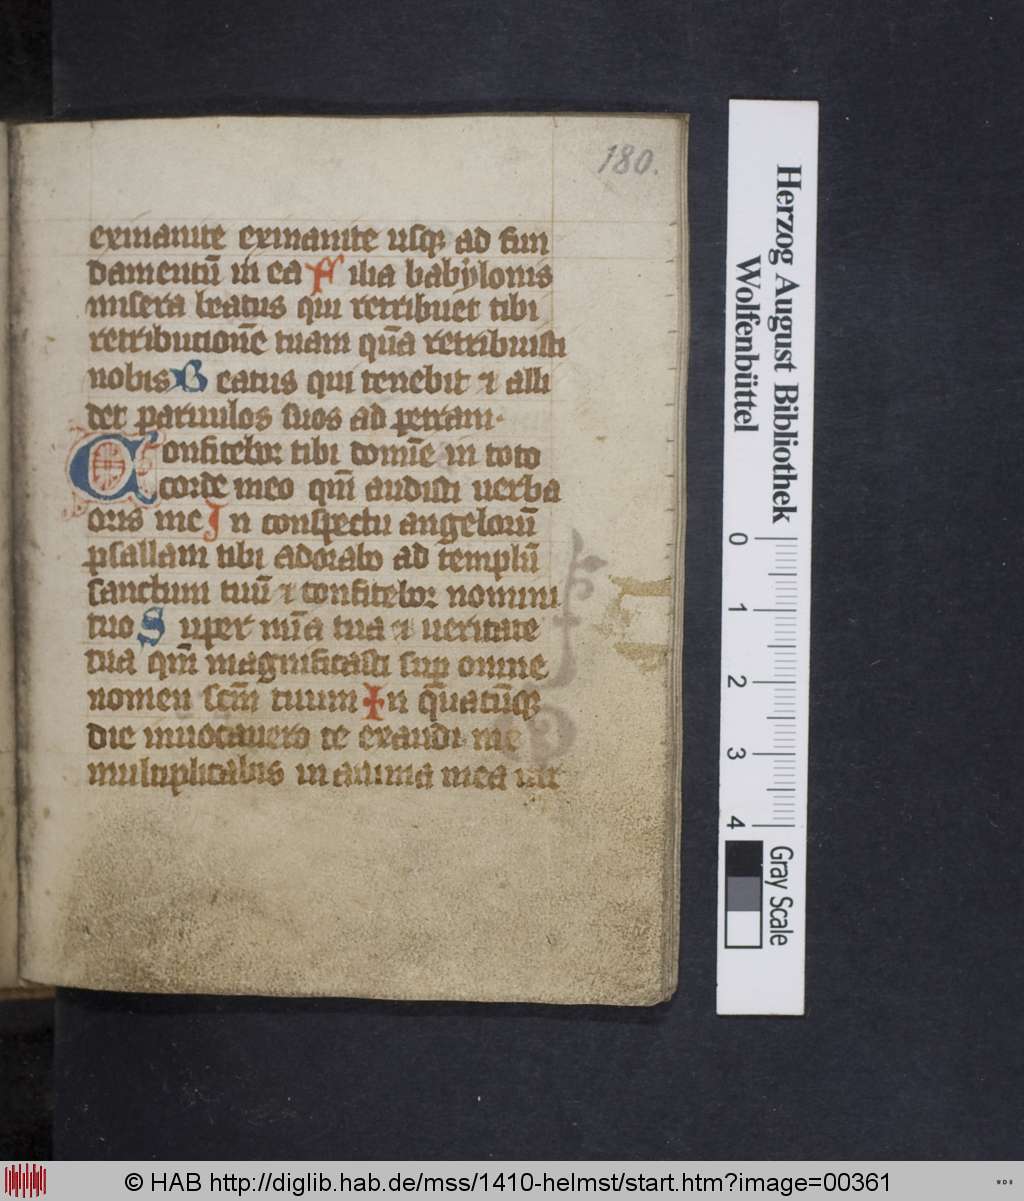 180.
exinanite exinanite usq; ad fun
damentū in ea Filia babylonis
misera beatus qui retribuet tibi
retributionē tuam qua̅ retribuisti
nobis Beatus qui tenebit ⁊ alli
det paruulos suos ad petram·
Confitebor tibi domine in toto
corde meo qm̅ audisti uerba
oris mei In conspectu angelorū
psallam tibi adorabo ad templū
sanctum tuū ⁊ confitebor nomini
tuo Super mi̅a tua ⁊ ueritate
tua qm̅ magnificasti sup omne
nomen scm̅ tuum In qua̅cu̅q;
die inuocauero te exaudi me
multiplicabis in anima mea uir
Herzog August Bibliothek
Wolfenbüttel
0 1 2 3 4
Gray Scale
© HAB http://diglib.hab.de/mss/1410-helmst/start.htm?image=00361